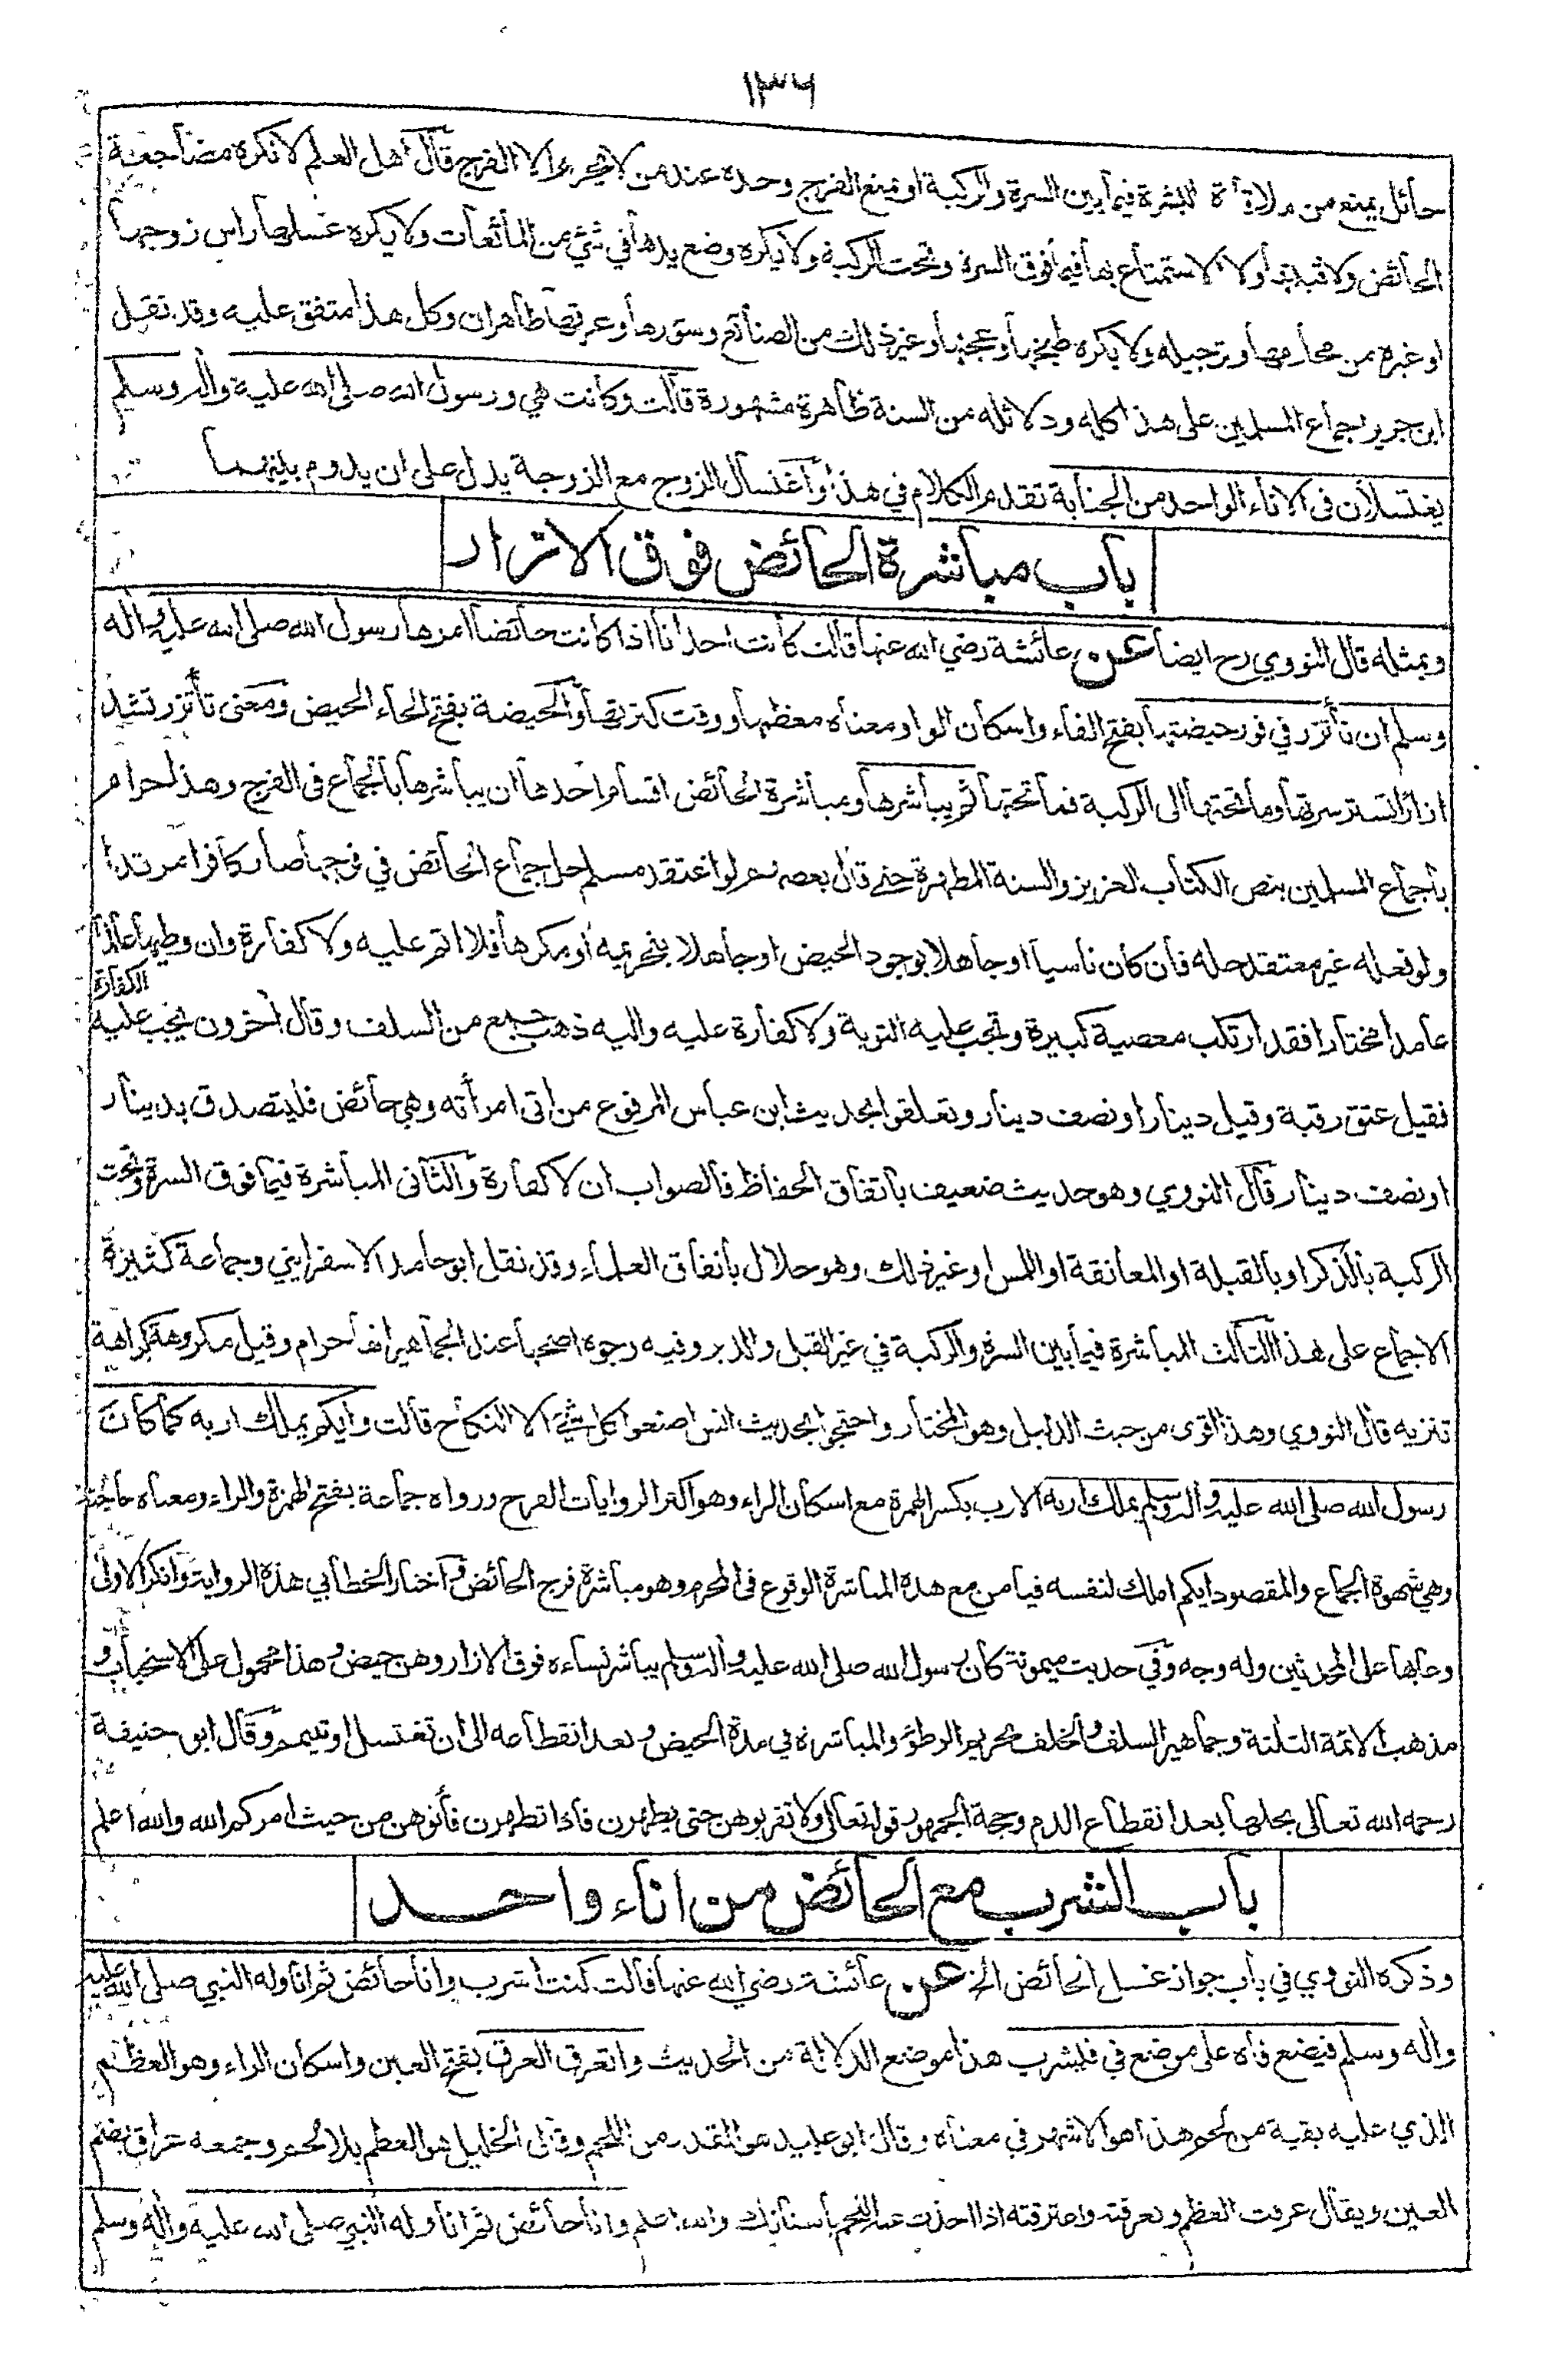 ١٣٦
حائل يمنع من ملاقاة البشرة فيما بين السرة والركبة او يمنع الفرج وحده عند من لا يحرم الا الفرج قال اهل العلم لا تكره مضاجعة
الحائض ولا قبلتها ولا الاستمتاع بها فيما فوق السرة وتحت الركبة ولا يكره وضع يدها في شئ من المائعات ولا يكره غسلها راس زوجها
او غيره من محارمها وترجيله ولا يكره طبخها وعجنها وغير ذلك من الصنائع وسورها وعرقها طاهران وكل هذا متفق عليه وقد نقل
ابن جرير اجماع المسلمين على هذا كله ودلائله من السنة ظاهرة مشهورة قالت وكانت هي ورسول الله صلى الله عليه واله وسلم
يغتسلان فى الاناء الواحد من الجنابة تقدم الكلام في هذا واغتسال الزوج مع الزوجة يدل على ان يدوم بينهما
باب مباشرة الحائض فوق الازار
وبمثله قال النووي رح ايضا عن عائشة رضي الله عنها قالت كانت احدانا اذا كانت حائضا امرها رسول الله صلى الله عليه واله
وسلم ان تأتزر في فور حيضتها بفتح الفاء واسكان الواو معناه معظمها ووقت كثرتها والحيضة بفتح الحاء الحيض ومعنى تأتزر تشد
ازارا تستر سرتها وما تحتها الى الركبة فما تحتها ثم يباشرها ومباشرة الحائض اقسام احدها ان يباشرها بالجماع فى الفرج وهذا حرام
باجماع المسلمين بنص الكتاب العزيز والسنة المطهرة حتى قال بعضهم لو اعتقد مسلم حل جماع الحائض في فرجها صار كافرا مرتدا
ولو فعله غير معتقد حله فان كان ناسيا او جاهلا بوجود الحيض او جاهلا بتحريمه او مكرها فلا اثم عليه ولا كفارة وان وطيها عالما
عامدا مختارا فقد ارتكب معصية كبيرة وتجب عليه التوبة ولا كفارة عليه واليه ذهب جمع من السلف وقال اخرون يجب عليه الكفارة
فقيل عتق رقبة وقيل دينار او نصف دينار وتعلقوا بحديث ابن عباس المرفوع من اتى امرأته وهي حائض فليتصدق بدينار
او نصف دينار قال النووي وهو حديث ضعيف باتفاق الحفاظ فالصواب ان لا كفارة والثانى المباشرة فيما فوق السرة وتحت
الركبة بالذكر او بالقبلة او المعانقة او اللمس او غير ذلك وهو حلال باتفاق العلماء وقد نقل ابو حامد الاسفرايني وجماعة كثيرة
الاجماع على هذا الثالث المباشرة فيما بين السرة والركبة في غير القبل والدبر وفيه وجوه اصحها عند الجماهير انها حرام وقيل مكروهة كراهة
تنزيه قال النووي وهذا اقوى من حيث الدليل وهو المختار واحتجوا بحديث انس اصنعوا كل شئ الا النكاح قالت وايكم يملك اربه كما كان
رسول الله صلى الله عليه واله وسلم يملك اربه الارب بكسر الهمزة مع اسكان الراء وهو اكثر الروايات الفرج ورواه جماعة بفتح الهمزة والراء ومعناه حاجته
وهي شهوة الجماع والمقصود ايكم املك لنفسه فيامن مع هذه المباشرة الوقوع فى المحرم وهو مباشرة فرج الحائض واختار الخطابي هذه الرواية وانكر الاولى
وعابها على المحدثين وله وجه وفي حديث ميمونة كان رسول الله صلى الله عليه واله وسلم يباشر نساءه فوق الازار وهن حيض وهذا محمول على الاستحباب و
مذهب الائمة الثلثة وجماهير السلف والخلف تحريم الوطؤ والمباشرة في مدة الحيض وبعد انقطاعه الى ان تغتسل او تتيمم وقال ابو حنيفة
رحمه الله تعالى يحلها بعد انقطاع الدم وحجة الجمهور قوله تعالى ولا تقربوهن حتى يطهرن فاذا تطهرن فأتوهن من حيث امركم الله والله اعلم
باب الشرب مع الحائض من اناء واحد
وذكره النووي في باب جواز غسل الحائض الخ عن عائشة رضي الله عنها قالت كنت اشرب وانا حائض ثم اناوله النبي صلى الله عليه
واله وسلم فيضع فاه على موضع في فيشرب هذا موضع الدلالة من الحديث واتعرق العرق بفتح العين واسكان الراء وهو العظم
الذي عليه بقية من لحم هذا هو الاشهر في معناه وقال ابو عبيد هو القدر من اللحم وقال الخليل هو العظم بلا لحم وجمعه عراق بضم
العين ويقال عرقت العظم وتعرقته واعترقته اذا اخذت عنه اللحم بأسنانك والله اعلم وانا حائض ثم اناوله النبي صلى الله عليه واله وسلم